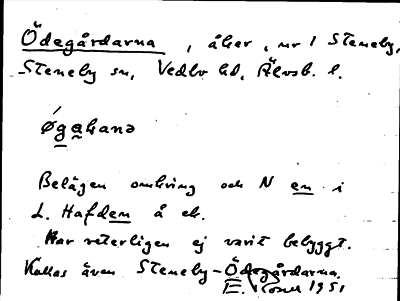 Ödegårdarna, åker, nr 1 Steneby,
Steneby sn, Vedbo hd, Älvsb. l.
øgahanə
Belägen omkring och N en i
L. Hafden å ek.
Har veterligen ej varit bebyggt.
Kallas även Steneby-Ödegårdarna.
E. 1951